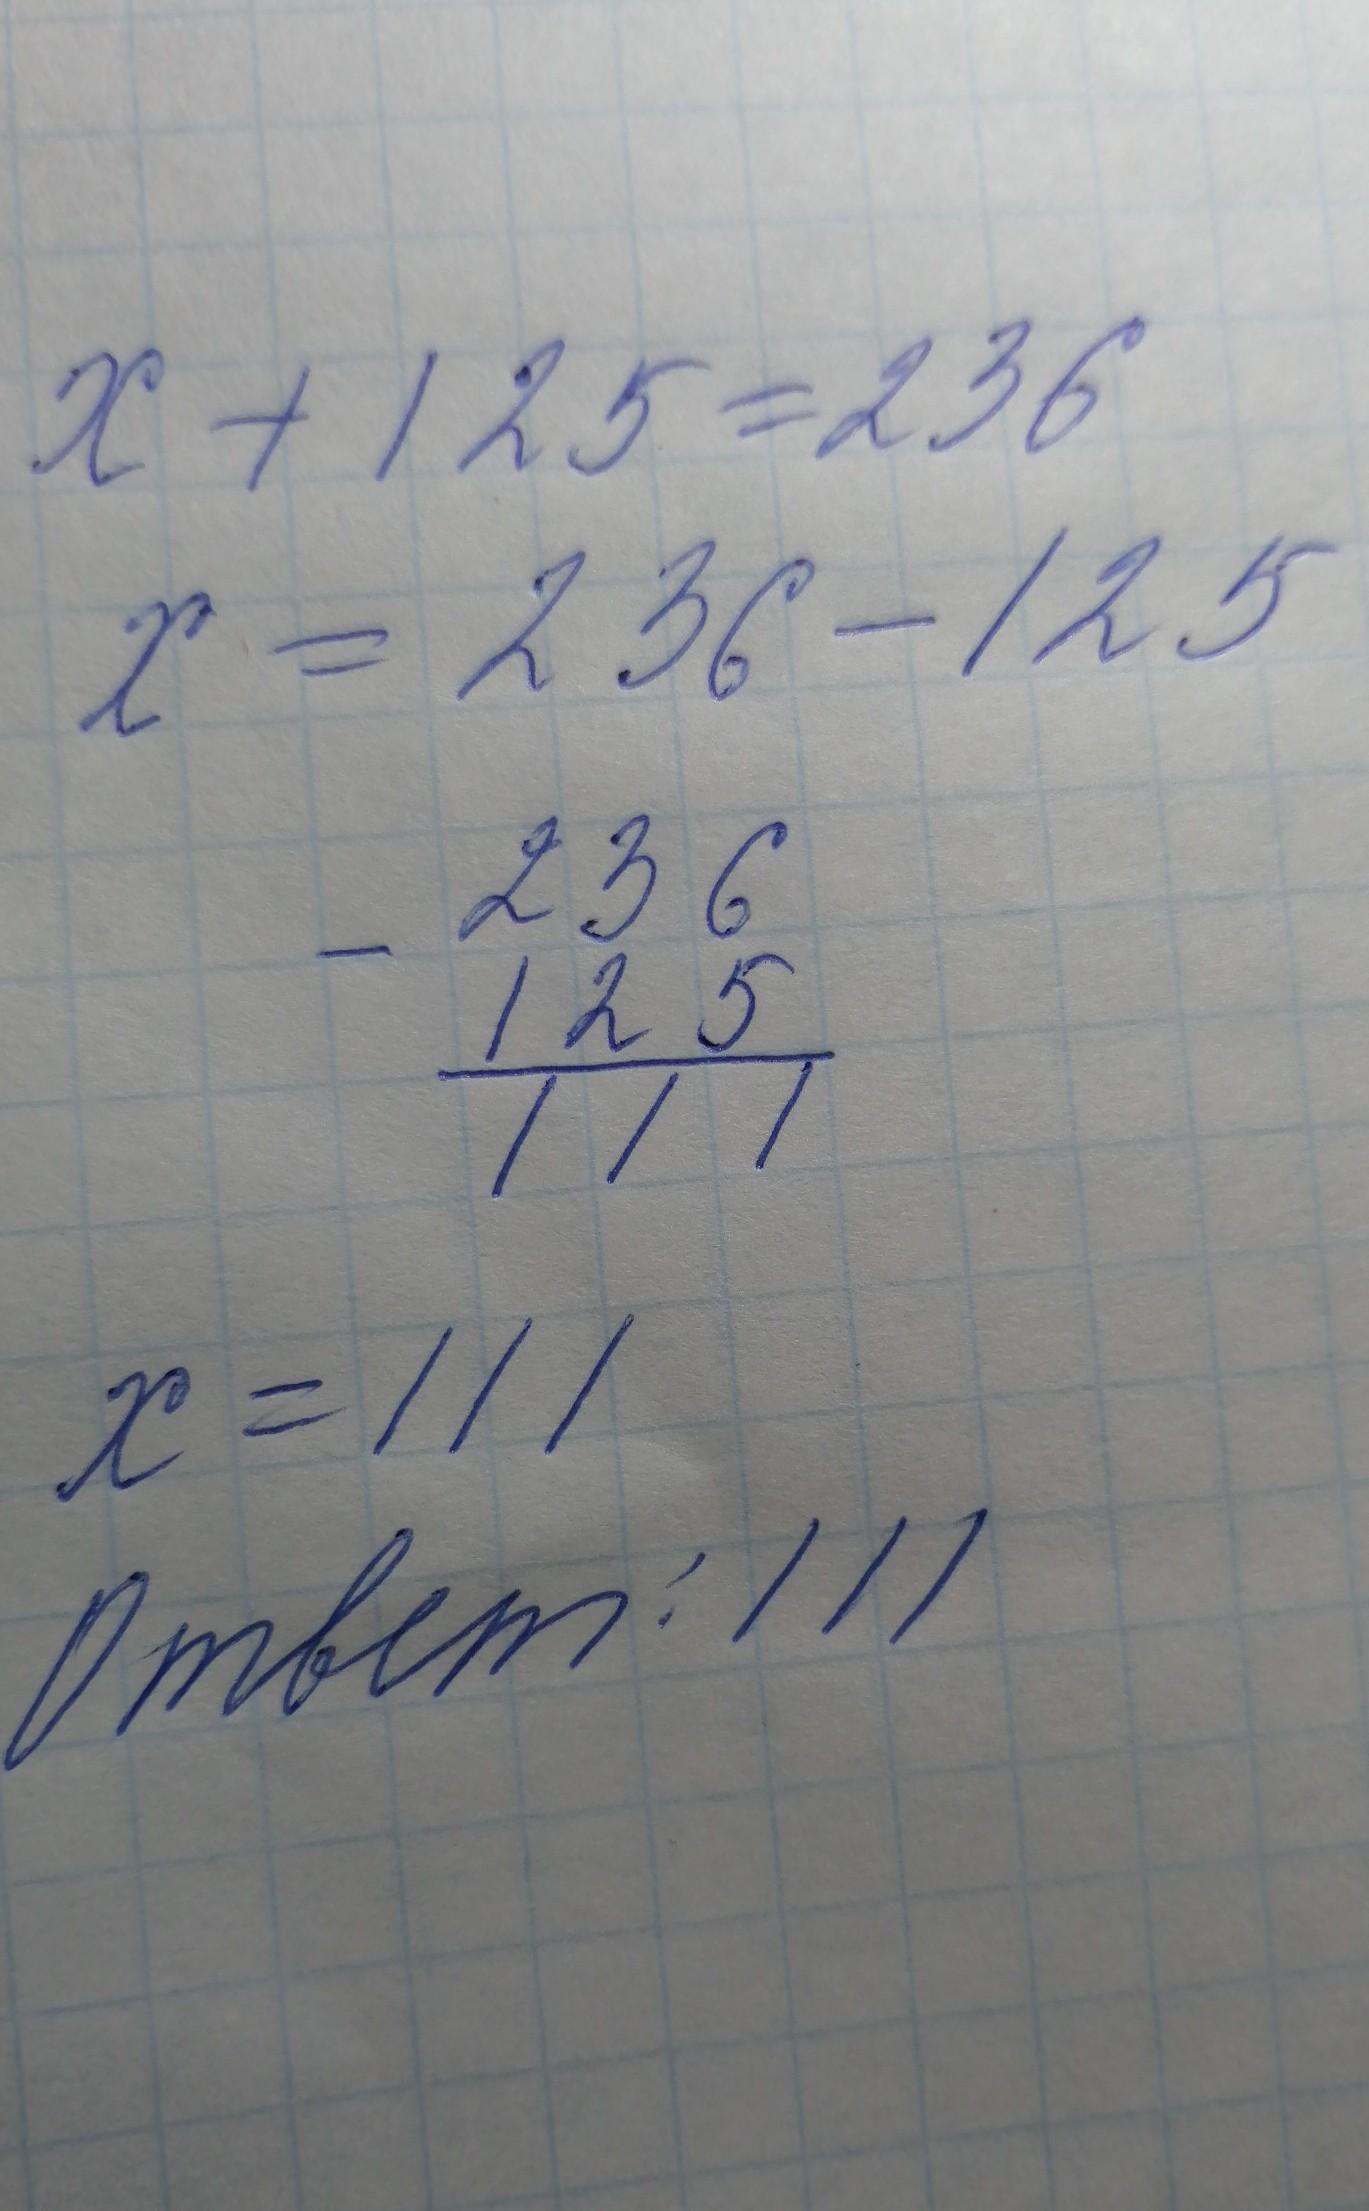 x + 125 = 236
x = 236 - 125
- 236
125
111
x = 111
Ответ: 111